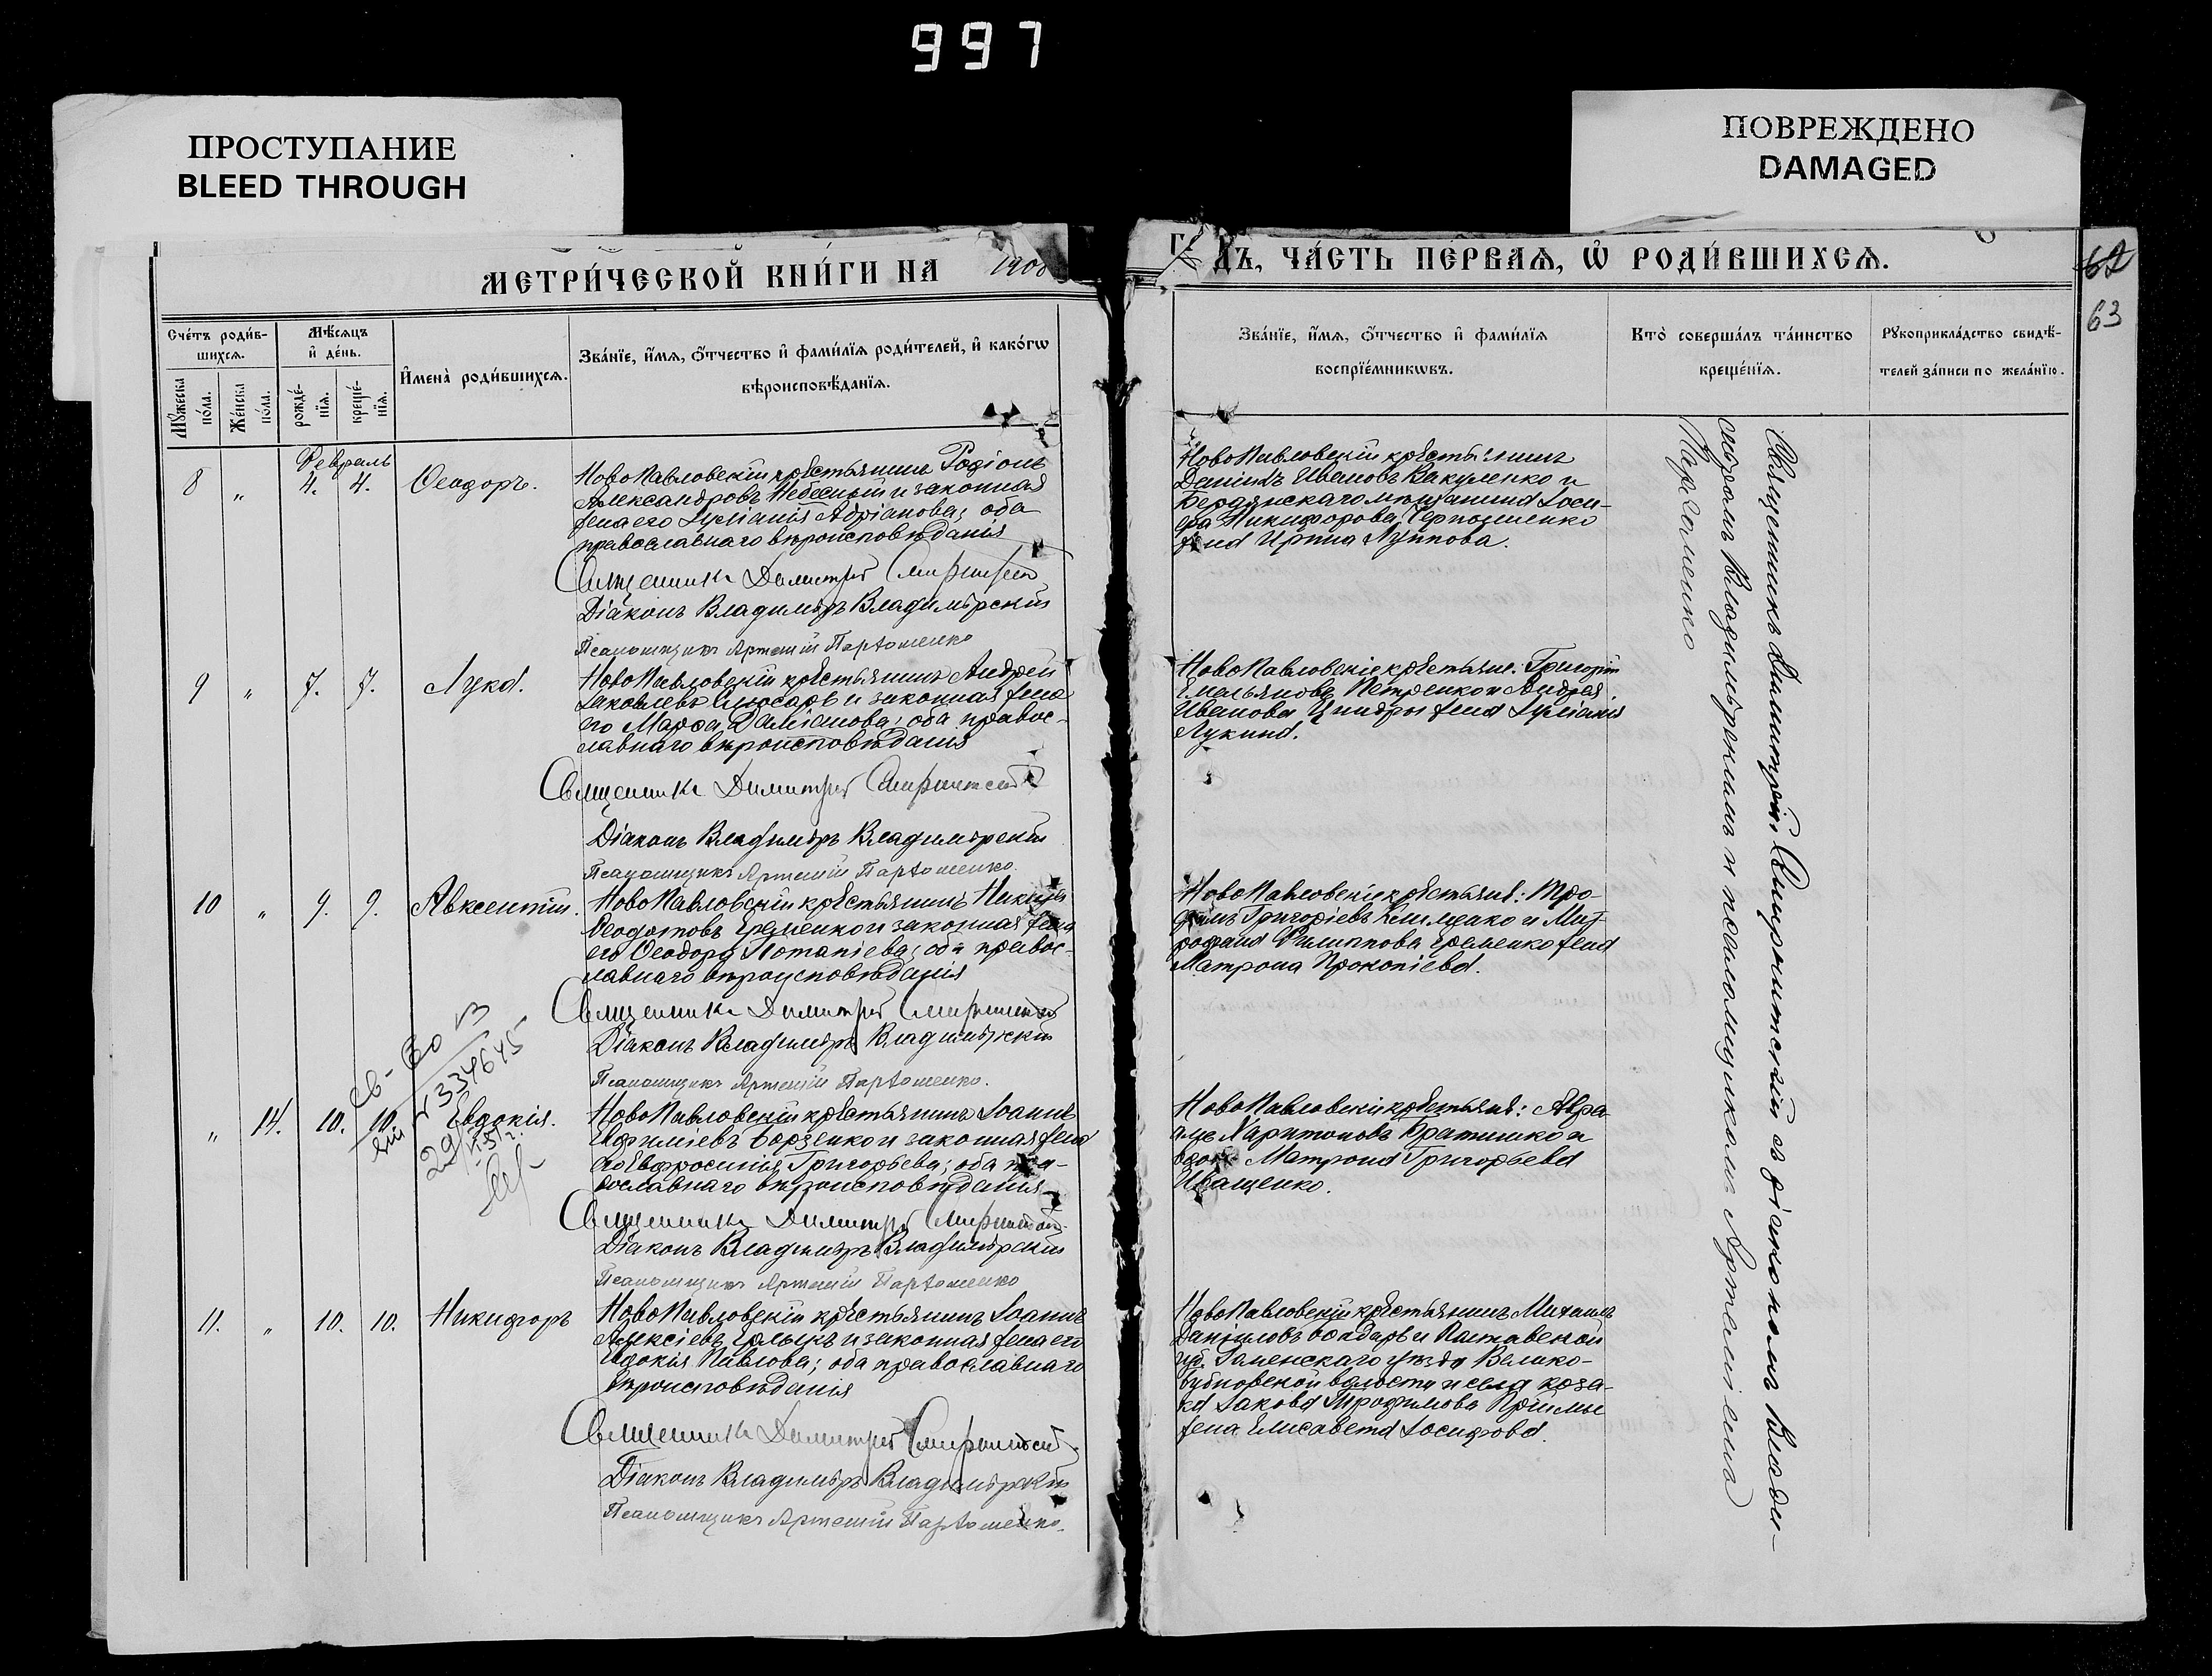 997
ПРОСТУПАНИЕ
BLEED THROUGH
ПОВРЕЖДЕНО
DAMAGED
МЕТРИ́ЧЕСКОЙ КНИ́ГИ НА 190
ДЪ, ЧА́СТЬ ПЕ́РВАѦ, Ѡ҆ РОДИ́ВШИХСѦ.
62
63
Сче́тъ роди́в-
шихсѧ.
Мꙋ́жеска по́ла.
Же́нска по́ла.
Мѣ́сѧцъ
и҆ де́нь.
рожде́-
нїѧ.
креще́-
нїѧ.
И҆мена̀ роди́вшихсѧ.
Зва́нїе, и҆́мѧ, ѻ҆́тчество и҆ фами́лїѧ роди́телей, и҆ како́гѡ
вѣроисповѣ́данїѧ.
Зва́нїе, и҆́мѧ, ѻ҆́тчество и҆ фами́лїѧ
воспрїе́мникѡвъ.
Кто̀ соверша́лъ та́инство
креще́нїѧ.
Рꙋкоприкла́дство свидѣ́-
телей за́писи по жела́нїю.
Февраль
8 " 4. 4. Ѳеодоръ.
НовоПавловскій крестьянинъ Родіонъ
Александровъ Небесный и законная
жена его Іуліанія Адріанова; оба
православнаго вѣроисповѣданія
Священникъ Димитрій
Діаконъ Владиміръ Владимірскій
Псаломщикъ Артемій Пархоменко
НовоПавловскій крестьянинъ
Даніилъ Ивановъ Вакуленко и
Бердянскаго мѣщанина Іоси-
фа Никифорова
жена Ирина Луппова.
9 " 7. 7. Лука.
НовоПавловскій крестьянинъ Андрей
Іаковлевъ Слюсарь и законная жена
его Марѳа Даміанова; оба правос-
лавнаго вѣроисповѣданія
Священникъ Димитрій
Діаконъ Владиміръ Владимірскій
Псаломщикъ Артемій Пархоменко.
НовоПавловскіе крестьяне: Григорій
Емельяновъ Петренко и Андрея
Иванова жена Іуліанія
Лукина.
10 " 9. 9. Авксентій.
НовоПавловскій крестьянинъ Никита
Ѳеодотовъ Еременко и законная жена
его Ѳеодора Потапіева; оба правос-
лавнаго вѣроисповѣданія
Священникъ Димитрій
Діаконъ Владиміръ Владимірскій
Псаломщикъ Артемій Пархоменко.
НовоПавловскіе крестьяне: Тро-
фимъ Григоріевъ Клименко и Мит-
рофана Филиппова Еременко жена
Матрона Прокопіева.
" 14. 10. 10. Евдокія.
334645
НовоПавловскій крестьянинъ Іоаннъ
Борзенко и законная жена
его Евфросинія Григорьева; оба пра-
вославнаго вѣроисповѣданія
Священникъ Димитрій
Діаконъ Владиміръ Владимірскій
Псаломщикъ Артемій Пархоменко
НовоПавловскіе крестьяне: Авра-
амъ Харитоновъ Братишко и
Матрона Григорьева
Иващенко.
11. " 10. 10. Никифоръ
НовоПавловскій крестьянинъ Іоаннъ
Алексіевъ и законная жена его
Евдокія Павлова; оба православнаго
вѣроисповѣданія
Священникъ Димитрій
Діаконъ Владиміръ Владимірскій
Псаломщикъ Артемій Пархоменко.
НовоПавловскій крестьянинъ Михаилъ
Даніиловъ Бондарь и Полтавской
губ. Роменскаго уѣзда Велико-
бубновской волости и села коза-
ка Іакова Трофимова Приймы
жена Елисавета Іосифова.
Священникъ Димитрій съ діакономъ Влади-
міромъ Владимірскимъ и псаломщикомъ Артеміемъ
Пархоменко